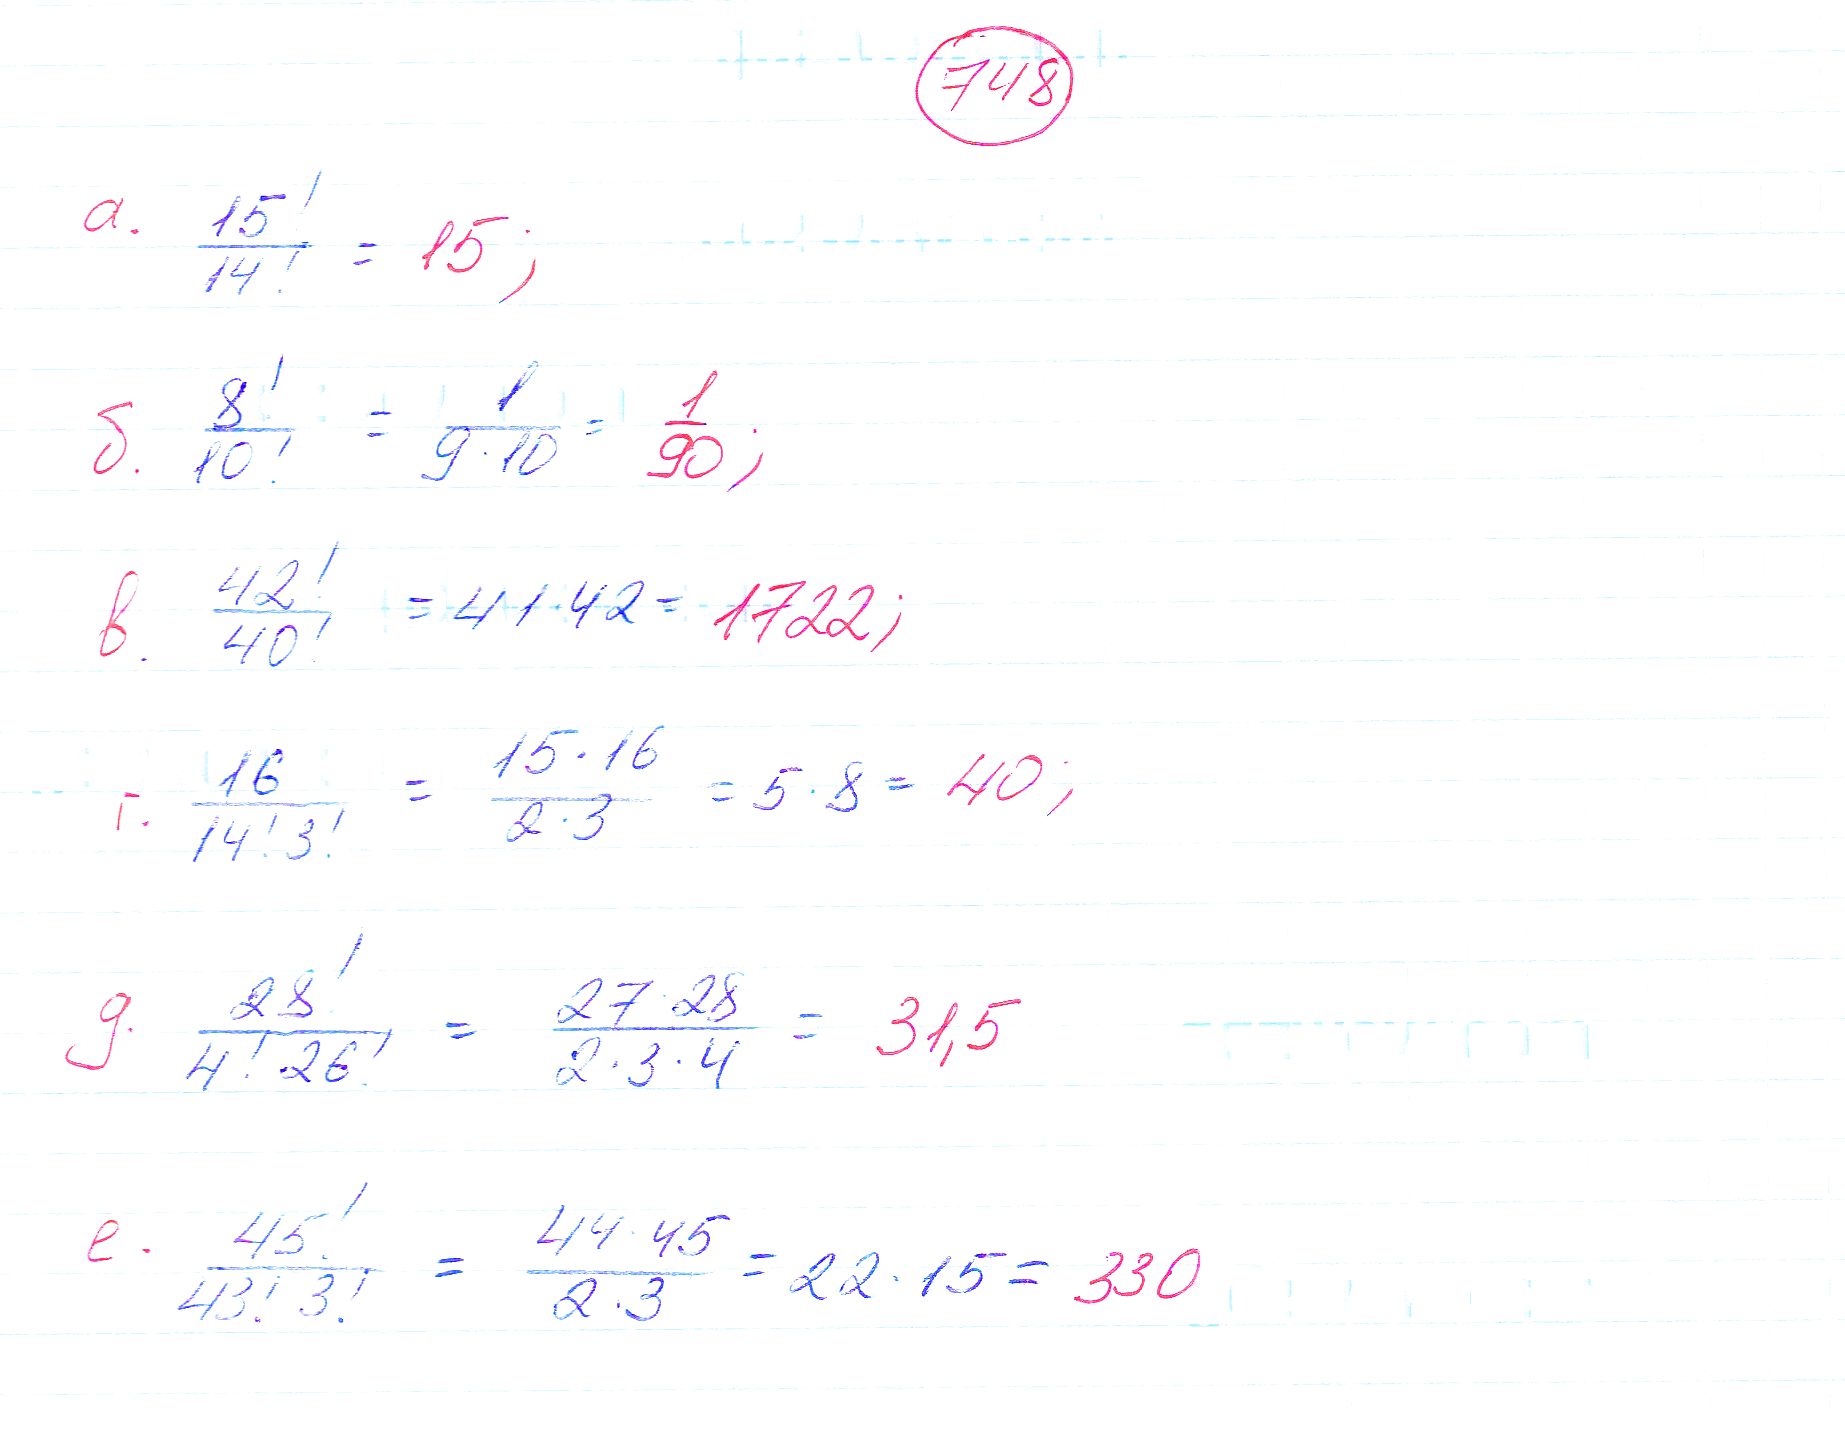 748
а. 15!/14! = 15;
б. 8!/10! = 1/9·10 = 1/90;
в. 42!/40! = 41·42 = 1722;
г. 16/14!3! = 15·16/2·3 = 5·8 = 40;
д. 28!/4!·26! = 27·28/2·3·4 = 31,5
е. 45!/43!3! = 44·45/2·3 = 22·15 = 330